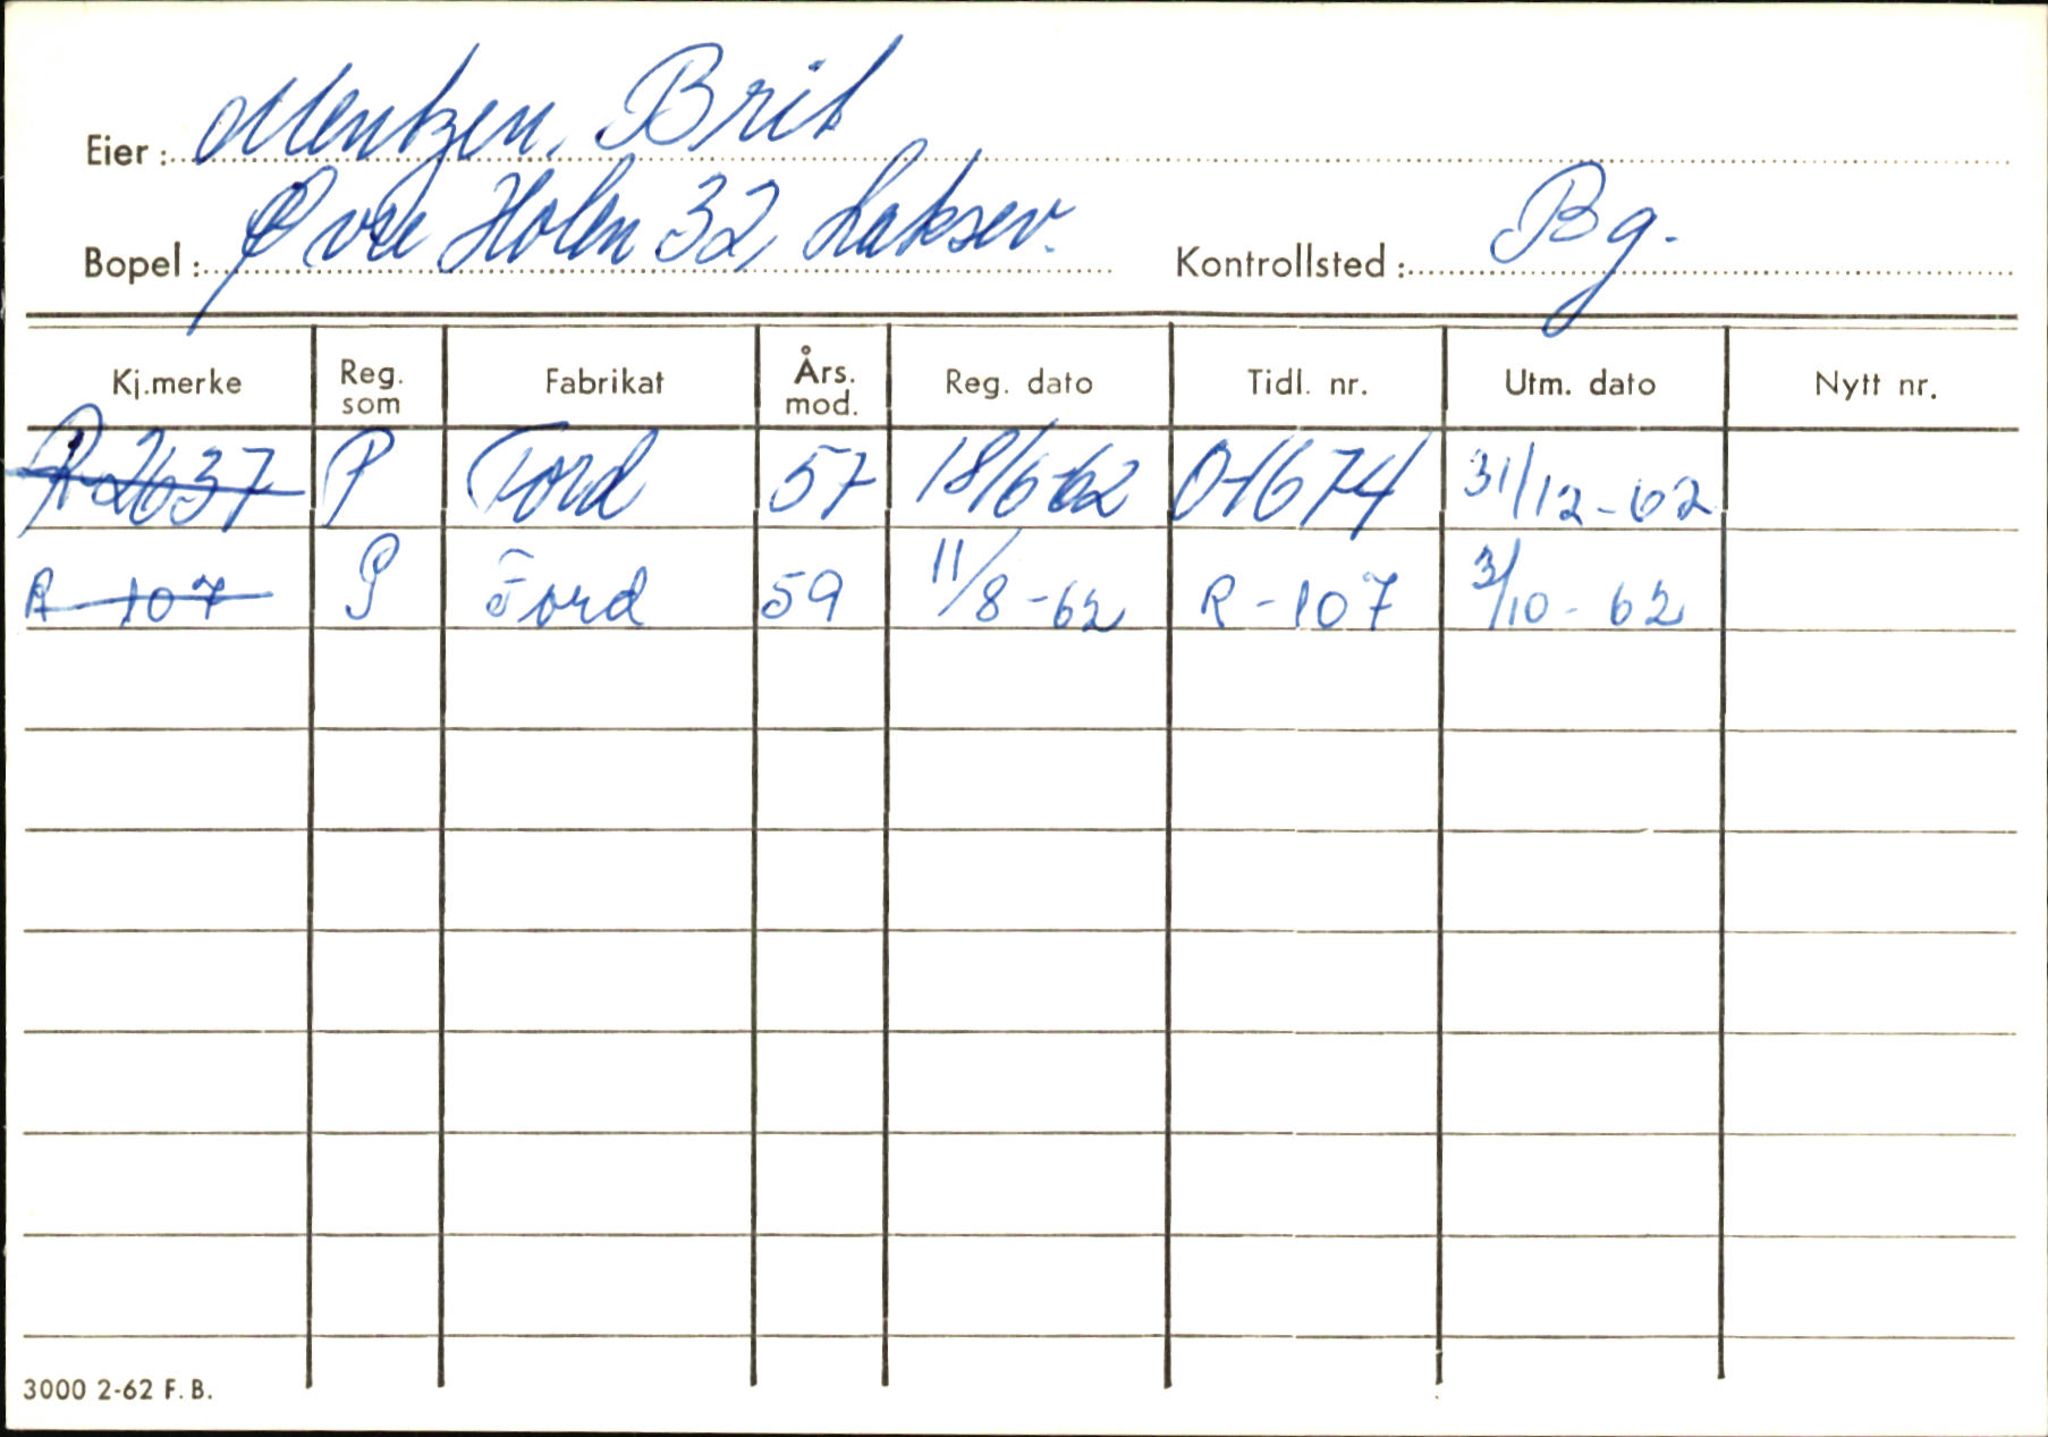 Eier: Mentzen, Brit
Bopel: Øvre Holen 32, Laksev. Kontrollsted: Bg.
Kj.merke Reg. som Fabrikat Års. mod. Reg. dato Tidl. nr. Utm. dato Nytt nr.
R-2637 P Ford 57 18/6-62 O-1674 31/12-62
R-107 P Ford 59 11/8-62 R-107 3/10-62
3000 2-62 F. B.